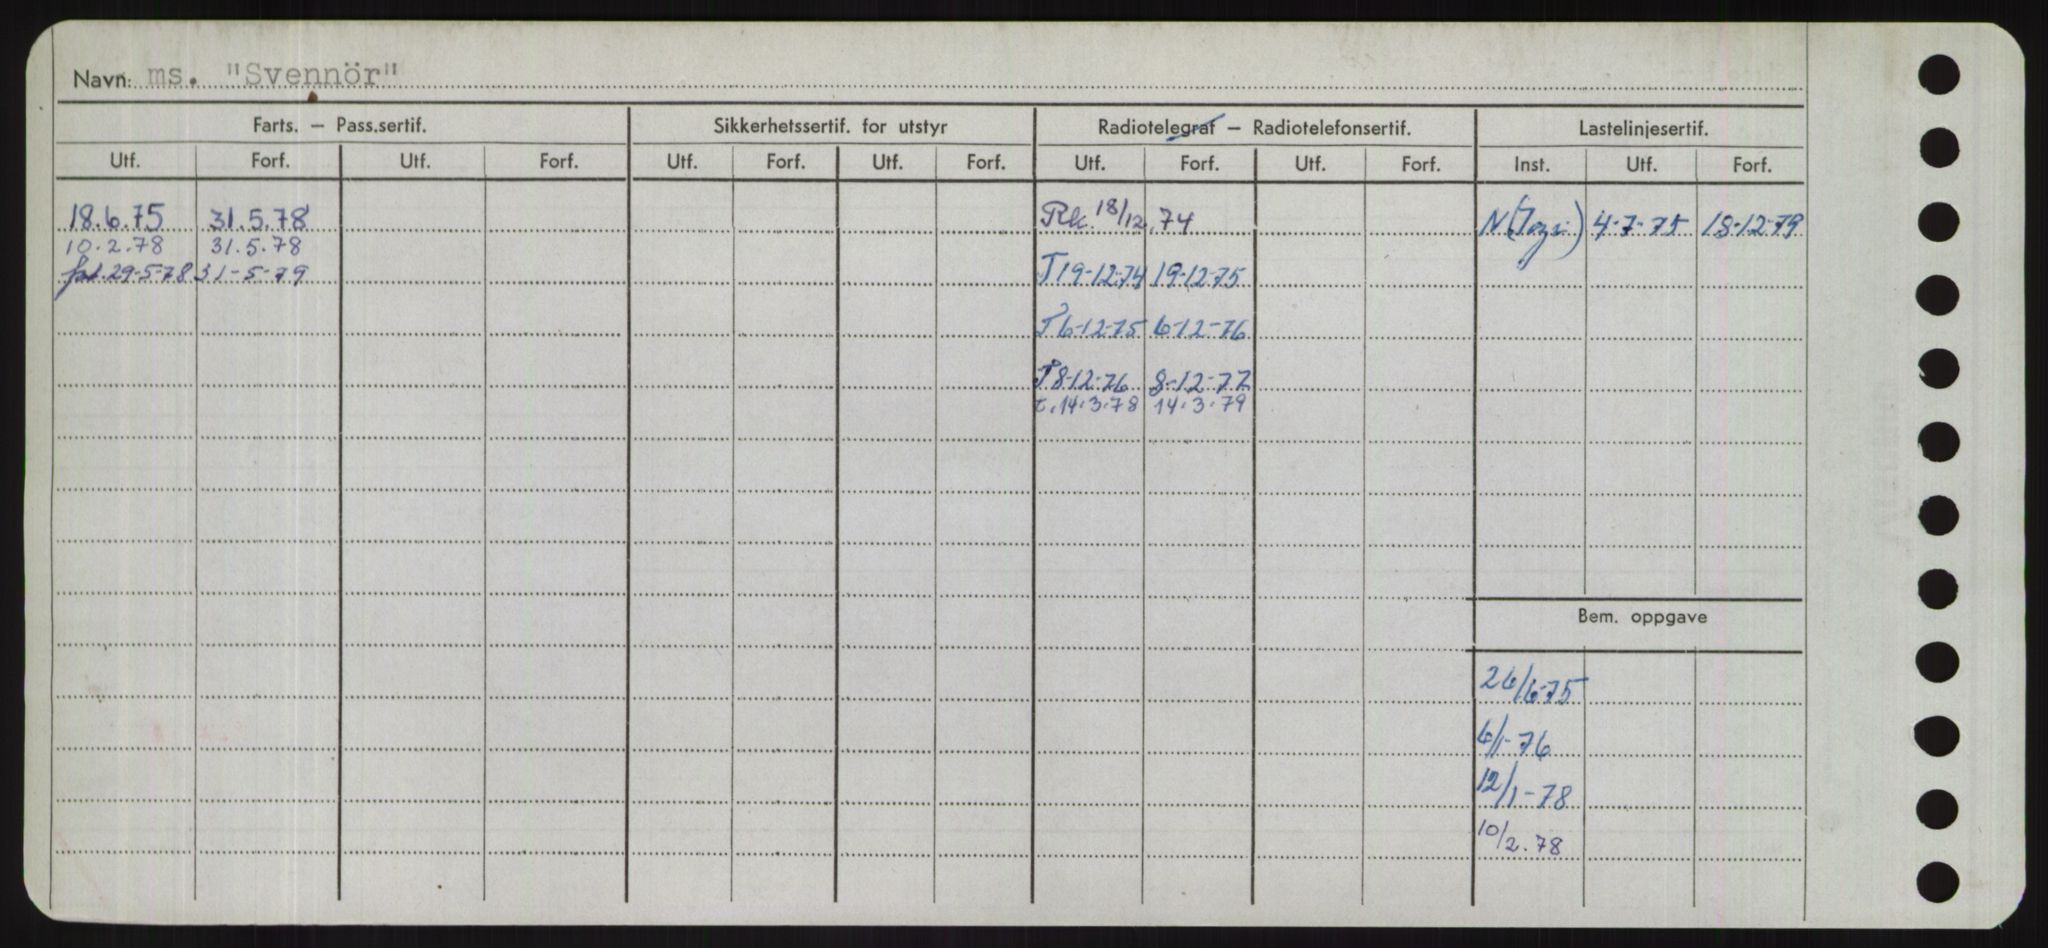 Navn: ms. "Svennör"
Farts. – Pass.sertif. Sikkerhetssertif. for utstyr Radiotelegraf – Radiotelefonsertif. Lastelinjesertif.
Utf. Forf. Utf. Forf. Utf. Forf. Utf. Forf. Utf. Forf. Utf. Forf. Inst. Utf. Forf.
18.6.75 31.5.78 Rk. 18/12.74 N 4-7-75 18-12-79
10.2.78 31.5.78
29-5-78 31-5-79 T 19-12-74 19-12-75
T 6-12-75 6-12-76
T 8-12-76 8-12-77
t. 14.3.78 14.3.79
Bem. oppgave
26/6-75
6/1-76
12/1-78
10/2.78